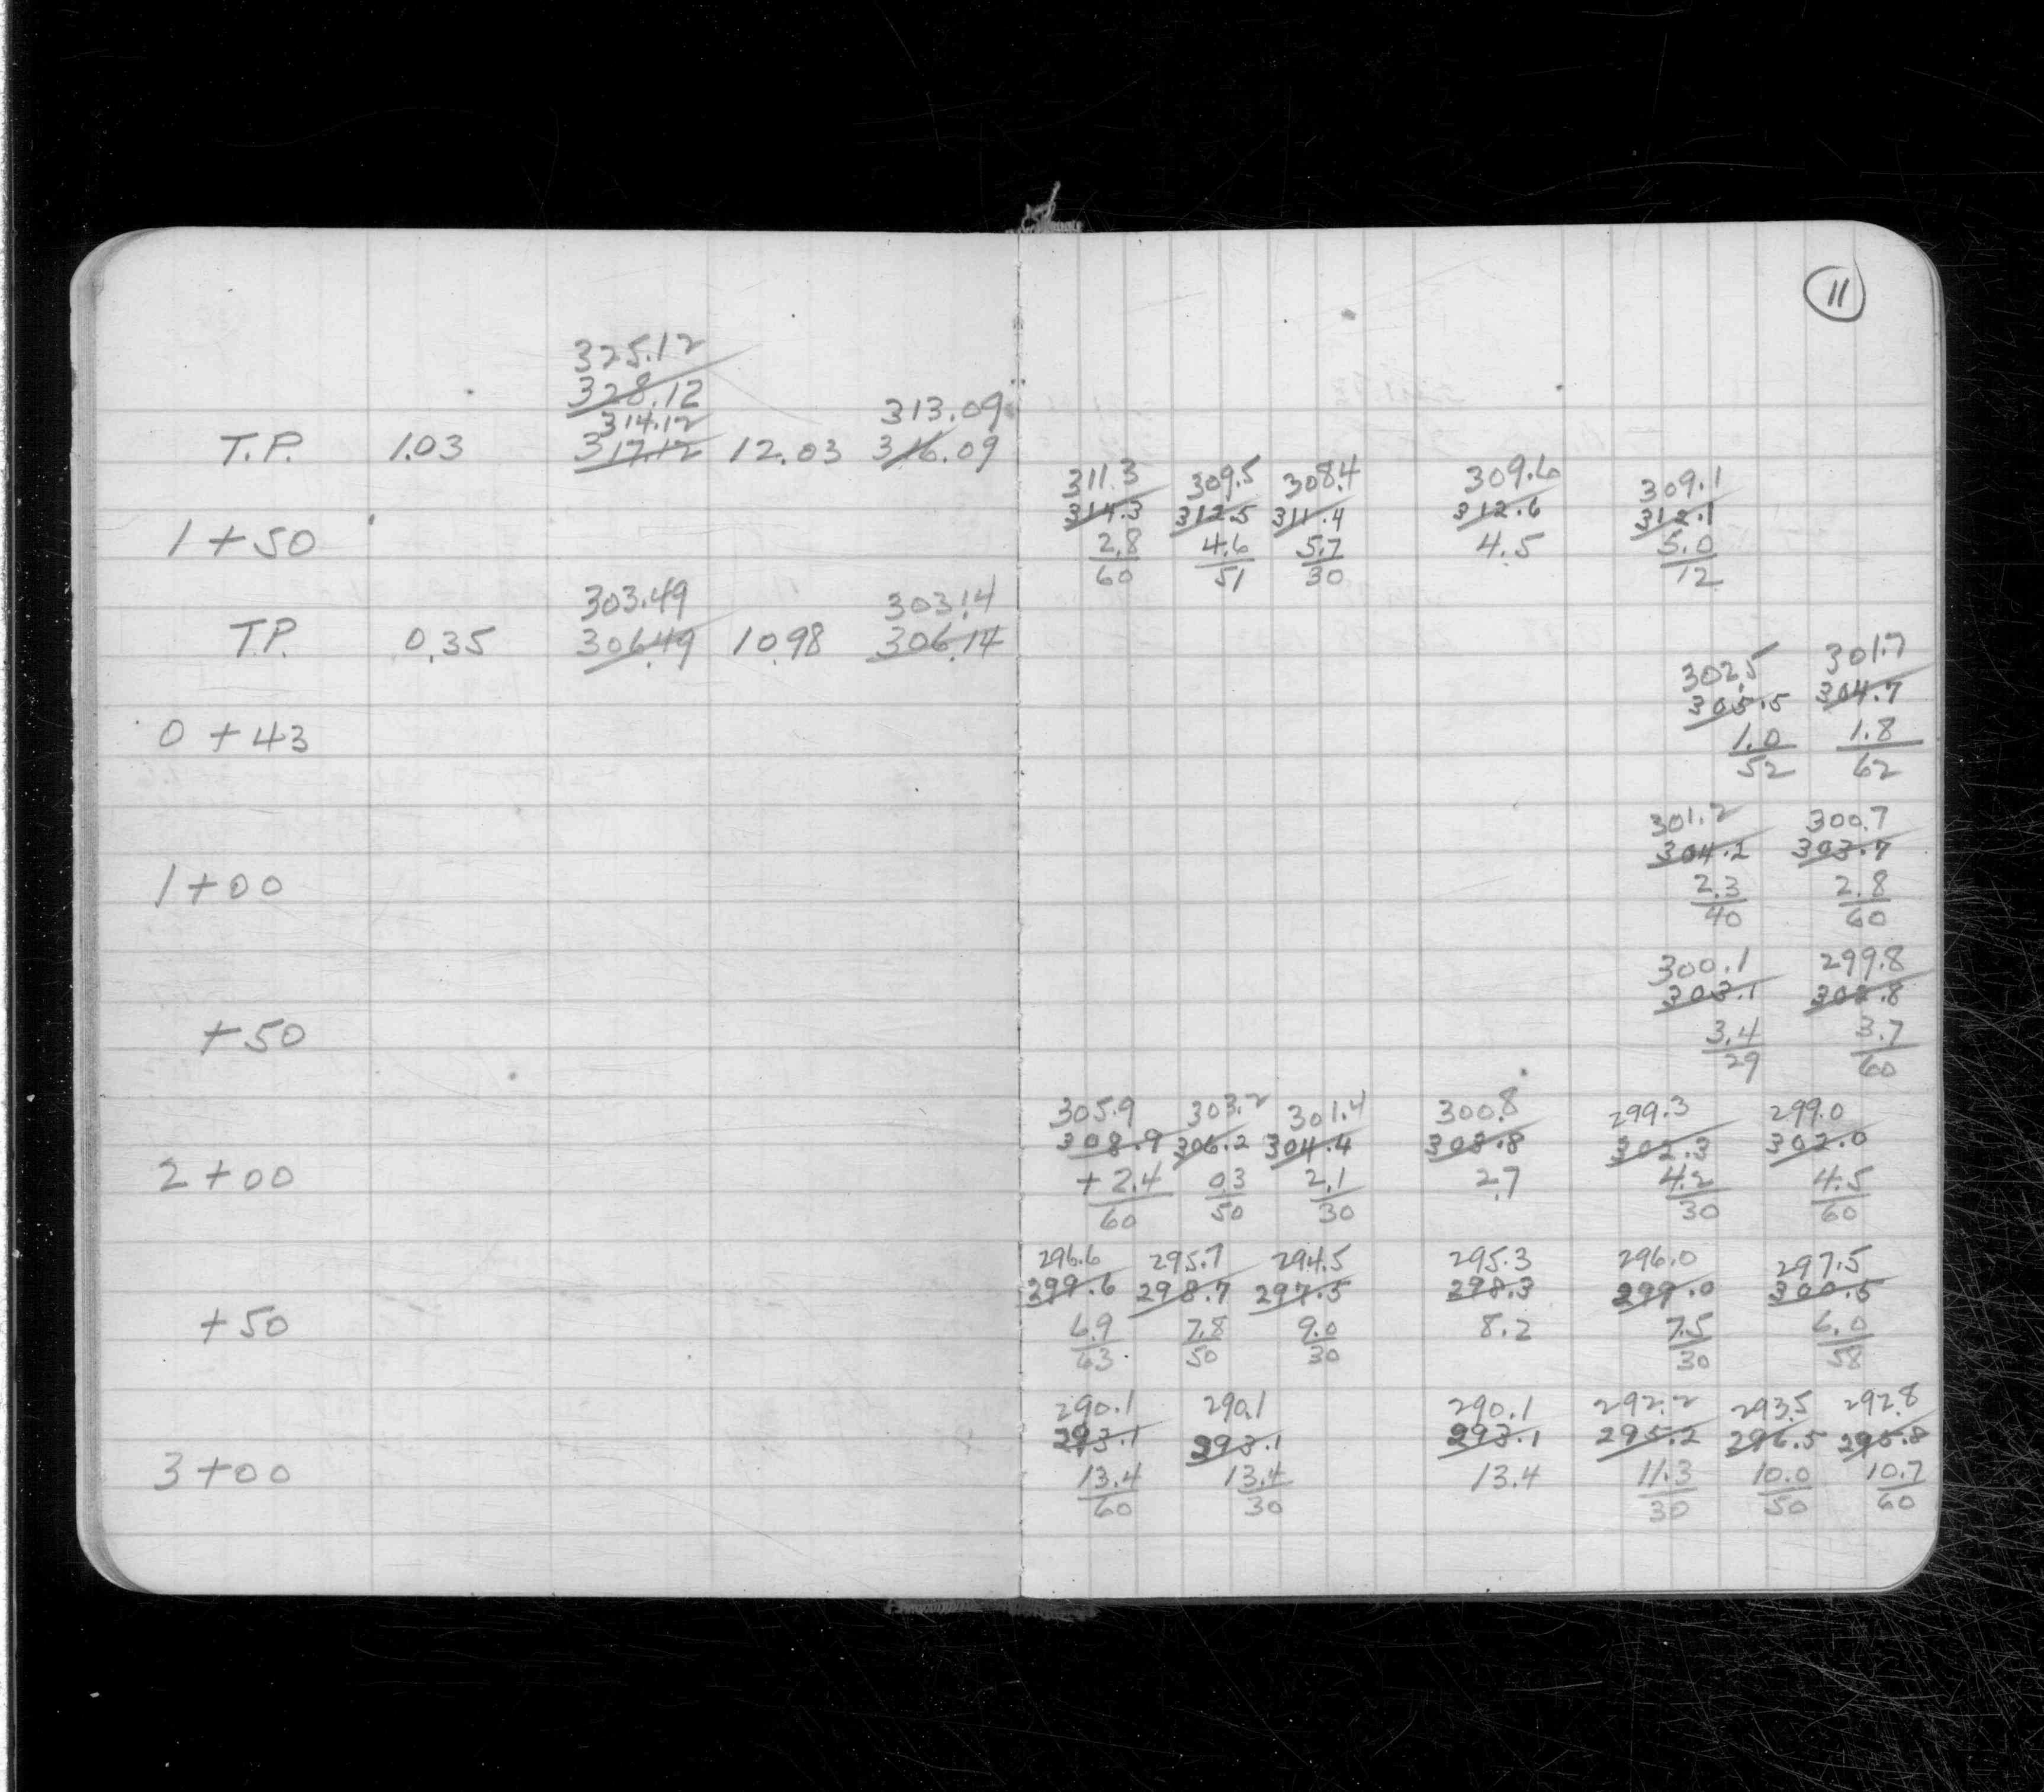 11
325.12
328.12
314.12 313.09
T.P. 1.03 317.12 12.03 316.09
311.3 309.5 308.4 309.6 309.1
314.3 312.5 311.4 312.6 312.1
1+50 2.8 4.6 5.7 4.5 5.0
60 51 30 12
303.49 303.14
T.P. 0.35 306.49 10.98 306.14
302.5 301.7
305.5 304.7
0+43 1.0 1.8
52 62
301.2 300.7
304.2 303.7
1+00 2.3 2.8
40 60
300.1 299.8
303.1 302.8
+50 3.4 3.7
29 60
305.9 303.2 301.4 300.8 299.3 299.0
308.9 306.2 304.4 303.8 302.3 302.0
2+00 +2.4 0.3 2.1 2.7 4.2 4.5
60 50 30 30 60
296.6 295.7 294.5 295.3 296.0 297.5
299.6 298.7 297.5 298.3 299.0 300.5
+50 6.9 7.8 9.0 8.2 7.5 6.0
63 50 30 30 58
290.1 290.1 290.1 292.2 293.5 292.8
293.1 293.1 293.1 295.2 296.5 295.8
3+00 13.4 13.4 13.4 11.3 10.0 10.7
60 30 30 50 60